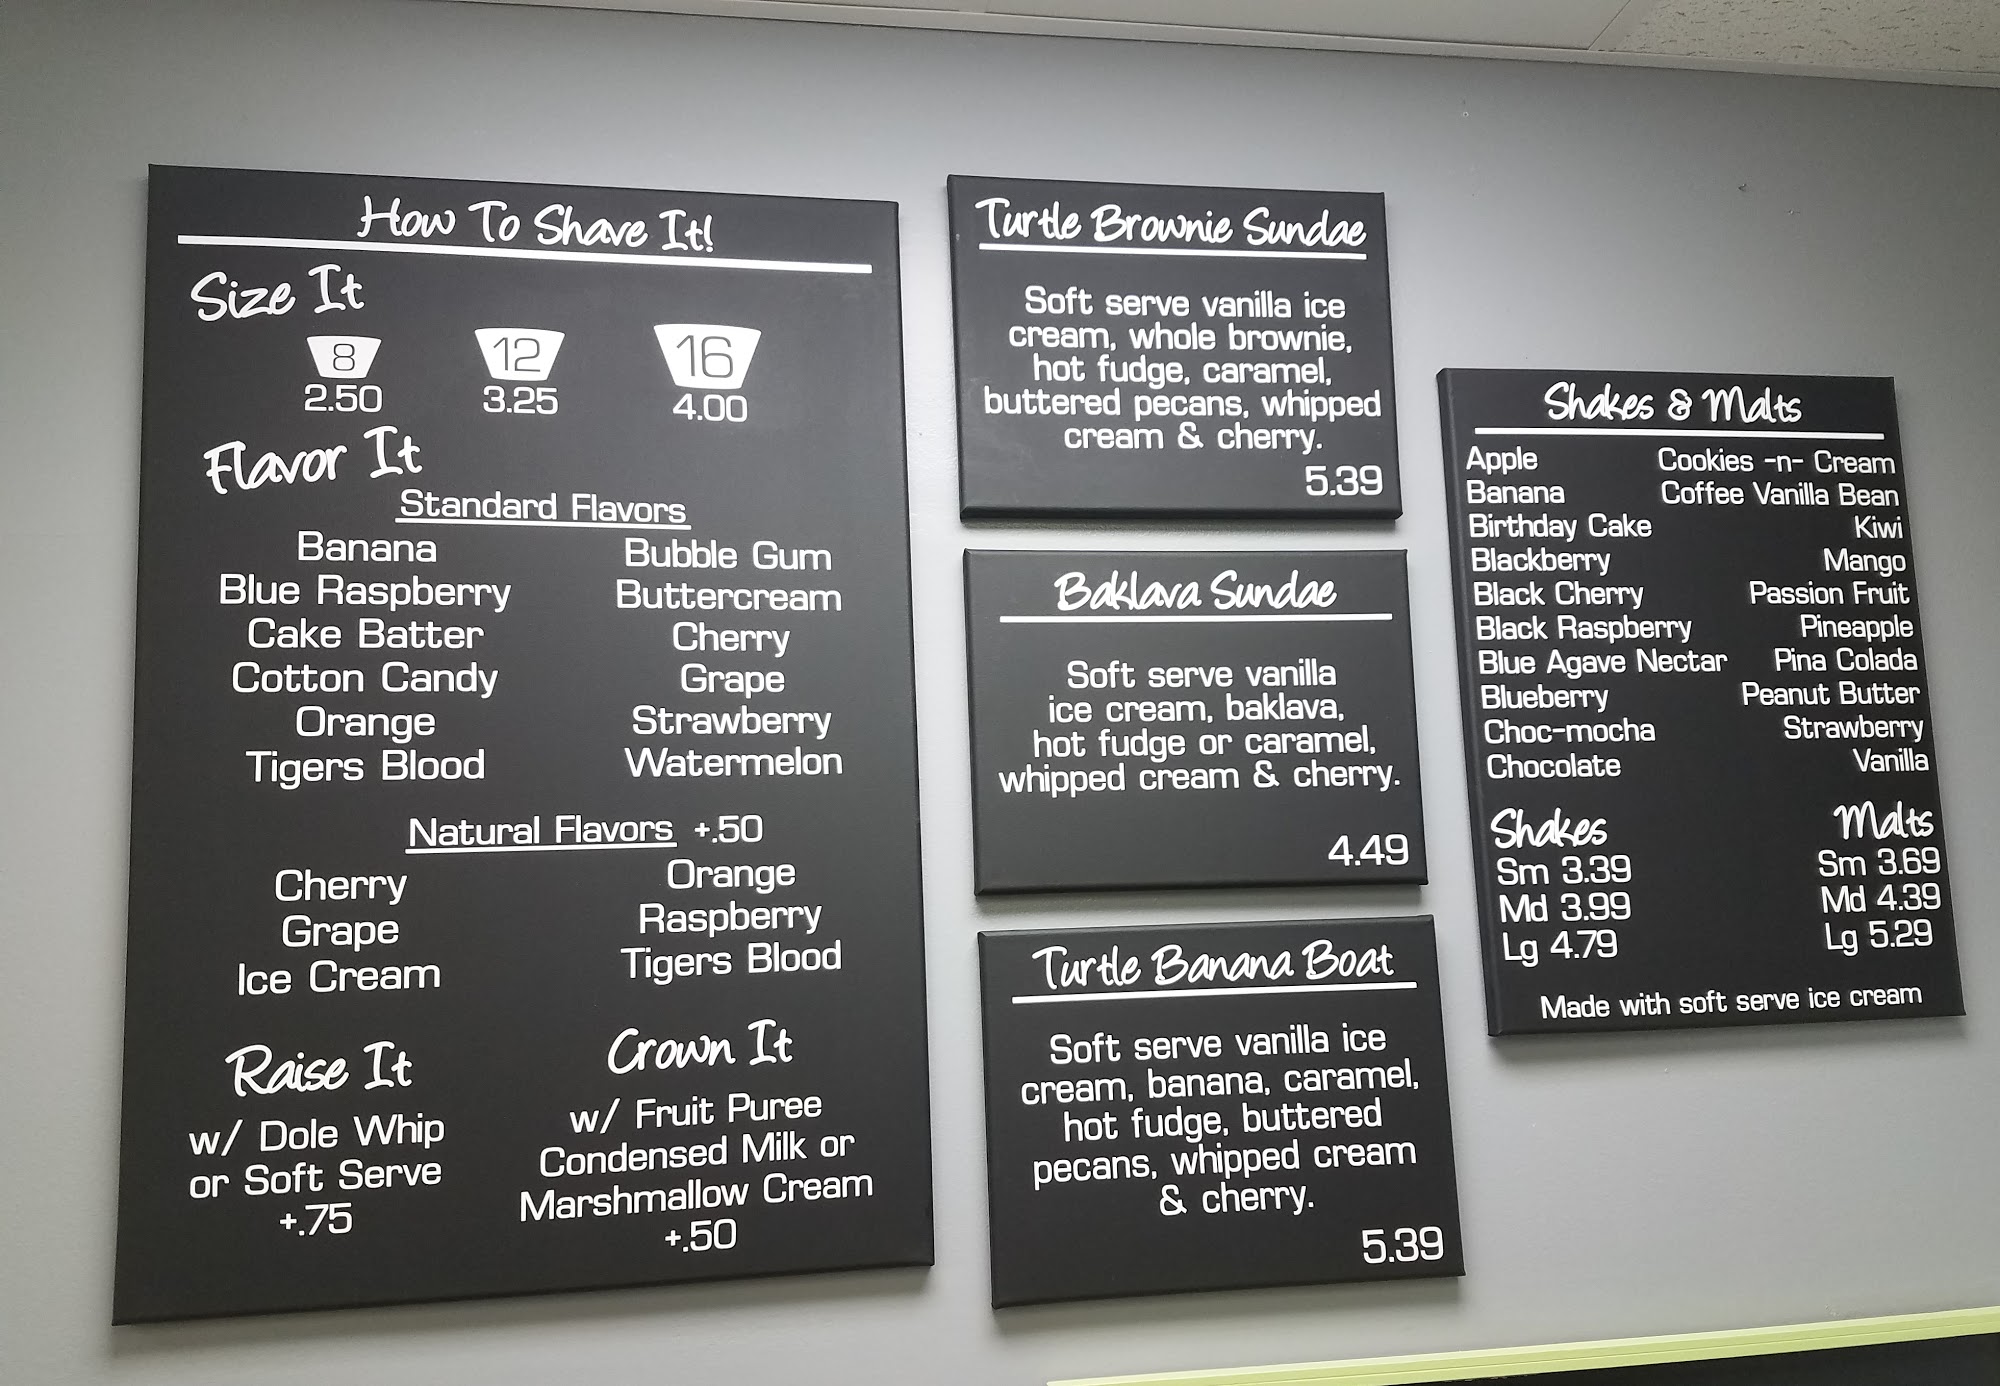 How To Shave It!
Size It
8 12 16
2.50 3.25 4.00
Flavor It
Standard Flavors
Banana Bubble Gum
Blue Raspberry Buttercream
Cake Batter Cherry
Cotton Candy Grape
Orange Strawberry
Tigers Blood Watermelon
Natural Flavors +.50
Cherry Orange
Grape Raspberry
Ice Cream Tigers Blood
Raise It
w/ Dole Whip
or Soft Serve
+.75
Crown It
w/ Fruit Puree
Condensed Milk or
Marshmallow Cream
+.50
Turtle Brownie Sundae
Soft serve vanilla ice
cream, whole brownie,
hot fudge, caramel,
buttered pecans, whipped
cream & cherry.
5.39
Baklava Sundae
Soft serve vanilla
ice cream, baklava,
hot fudge or caramel,
whipped cream & cherry.
4.49
Turtle Banana Boat
Soft serve vanilla ice
cream, banana, caramel,
hot fudge, buttered
pecans, whipped cream
& cherry.
5.39
Shakes & Malts
Apple Cookies -n- Cream
Banana Coffee Vanilla Bean
Birthday Cake Kiwi
Blackberry Mango
Black Cherry Passion Fruit
Black Raspberry Pineapple
Blue Agave Nectar Pina Colada
Blueberry Peanut Butter
Choc-mocha Strawberry
Chocolate Vanilla
Shakes Malts
Sm 3.39 Sm 3.69
Md 3.99 Md 4.39
Lg 4.79 Lg 5.29
Made with soft serve ice cream